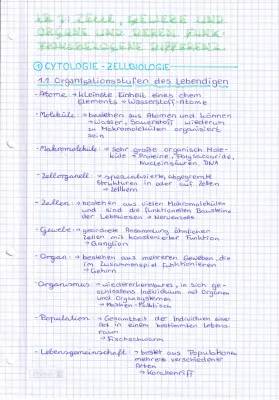 LB 1: ZELLE, GEWEBE UND
ORGANE UND DEREN FUNK-
① CYTOLOGIE - ZELLBIOLOGIE
1.1 Organisationsstufen des Lebendigen
- Atome → kleinste Einheit eines chem.
Elements → Wasserstoff-Atome
- Moleküle → bestehen aus Atomen und können
→ Wasser, Sauerstoff wiederum
zu Makromolekülen organisiert
sein
- Makromoleküle → sehr große organisch Mole-
küle → Proteine, Polysaccaride,
Nucleinsäuren, DNA
- Zellorganell → spezialisierte, abgegrenzte
Strukturen in oder auf Zellen
→ Zellkern
- Zellen → bestehen aus vielen Makromolekülen
und sind die funktionellen Bausteine
der Lebewesen → Nervenzelle
- Gewebe → geordnete Ansammlung ähnlicher
Zellen mit koordinierter Funktion
→ Ganglion
- Organ → bestehen aus mehreren Geweben, die
im Zusammenspiel funktionieren
→ Gehirn
- Organismus → wiedererkennbares, in sich ge-
schlossenes Individuum mit Organen
und Organsystemen
- Population → Gesamtheit der Individuen einer
Art in einem bestimmten Lebens-
raum
→ Fischschwarm
- Lebensgemeinschaft → bestet aus Populationen
mehrere verschiedener
Arten
→ Korallenriff